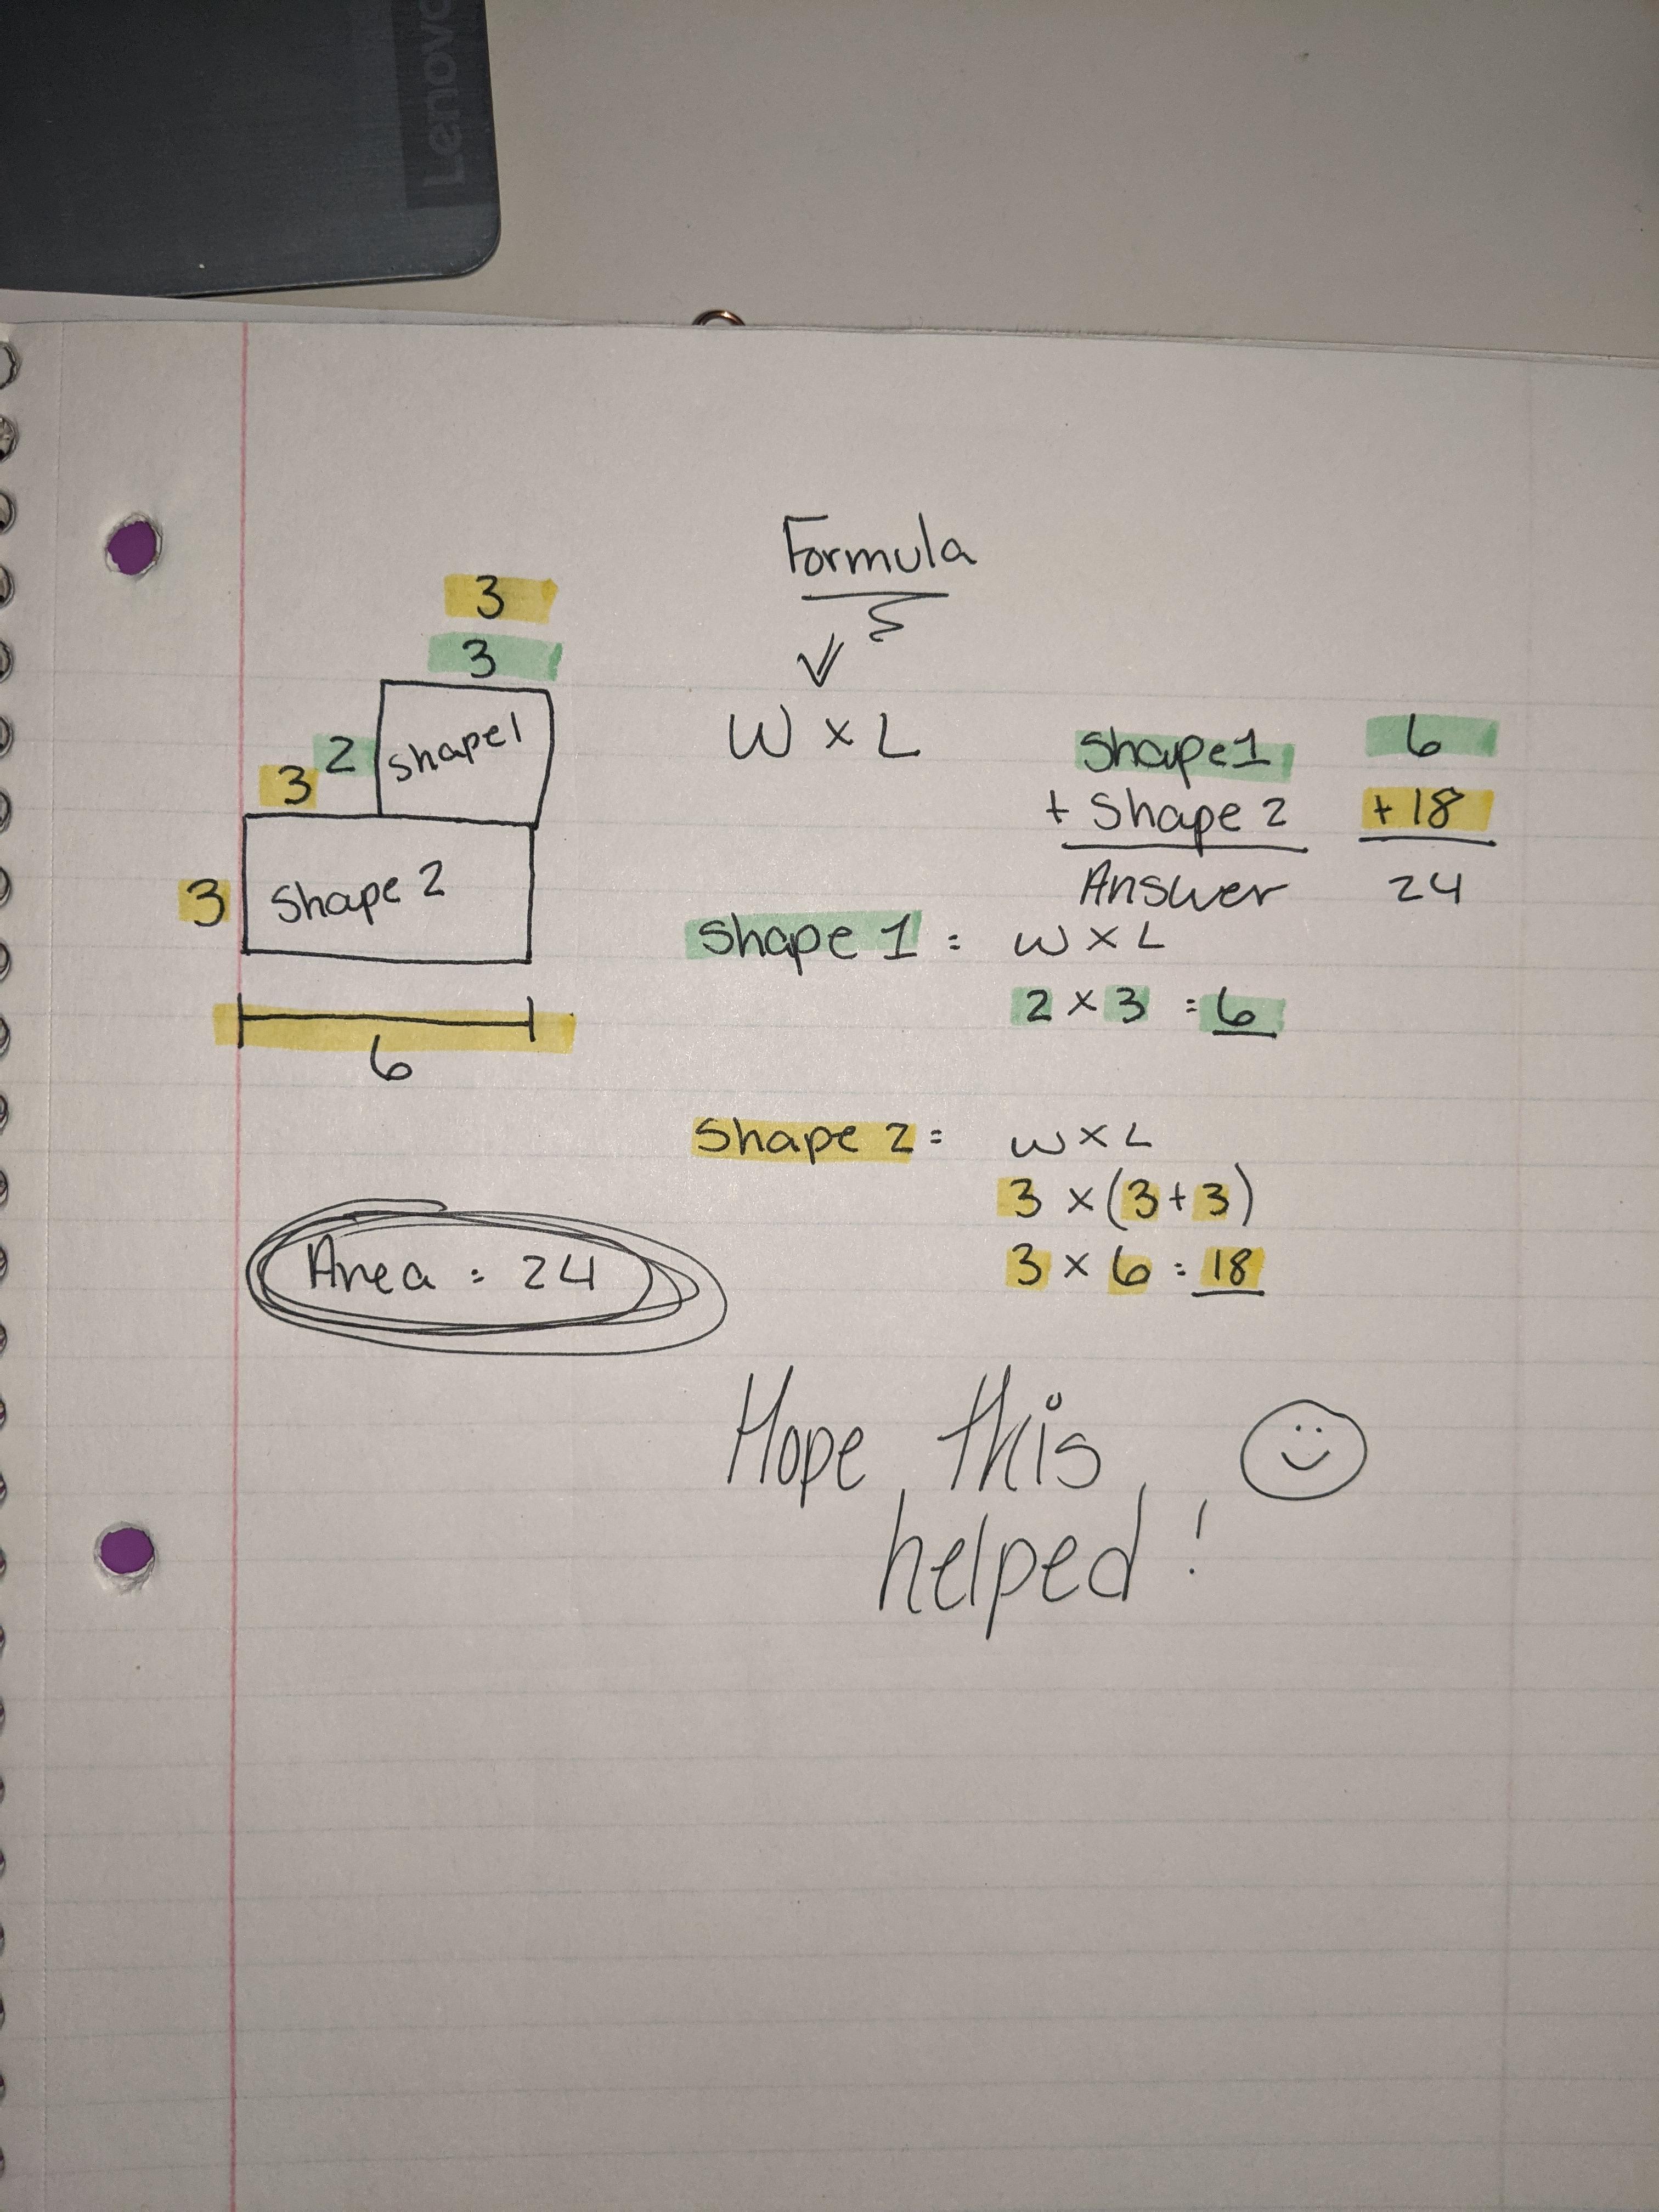 Lenovo
Formula
W x L
3
3
2
3
Shape 1
3
Shape 2
6
Shape 1 6
+ Shape 2 + 18
Answer 24
Shape 1 = W x L
2 x 3 = 6
Shape 2 = W x L
3 x (3 + 3)
3 x 6 = 18
Area = 24
Hope this
helped!